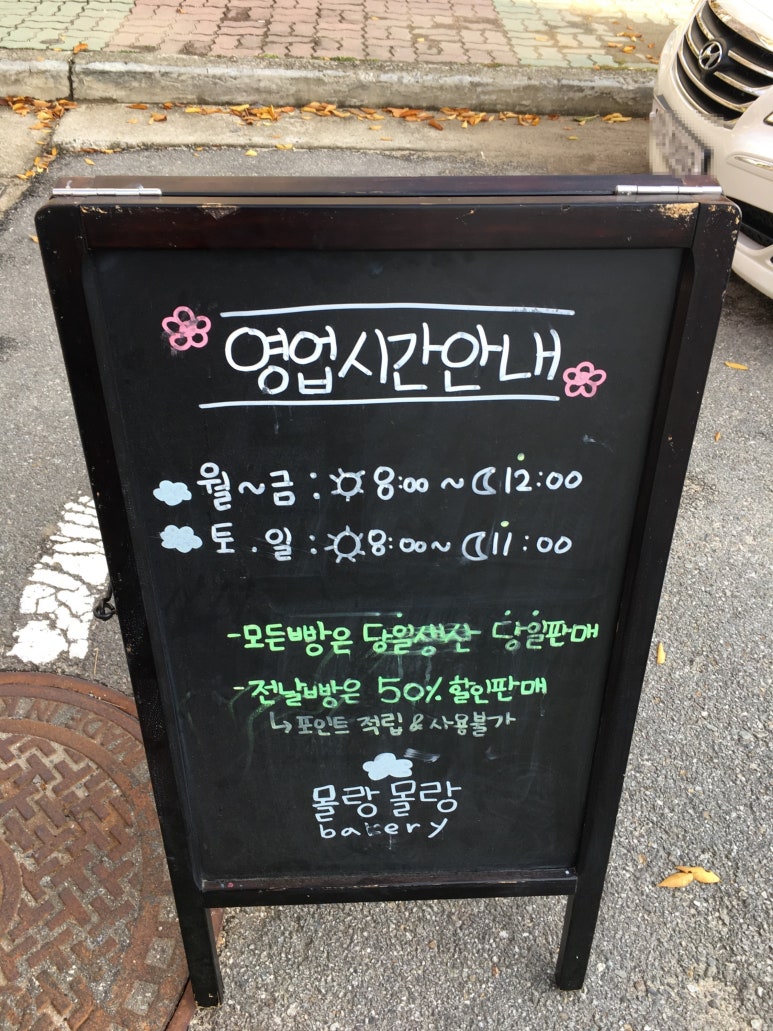 영업시간안내
월~금 : 8:00 ~ 12:00
토.일 : 8:00~ 11:00
-모든빵은 당일생산 당일판매
-전날빵은 50% 할인판매
↳포인트 적립 & 사용불가
몰랑몰랑
bakery